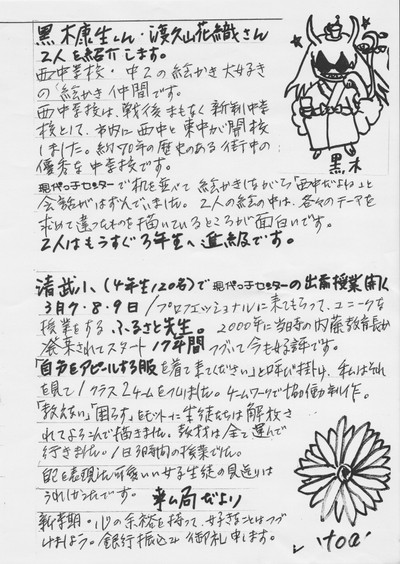 黒木康生くん・渡久山花織さん
2人を紹介します。
西中学校・中2の絵かき大好き
の「絵かき仲間です。
西中学校は、戦後まもなく新制中学
校として、市内に西中と東中が開校
しました。約70年の歴史のある街中の
優秀な中学校です。
黒木
現代っ子センターで机を並べて絵かきしながら「西中だよね」と
会話がはずんでいました。2人の絵の中は、各々のテーマを
求めて違ったものを描いているところが面白いです。
2人はもうすぐ3年生へ進級です。
清武小、(4年生120名)で現代っ子センターの出前授業開く
3月7・8・9日/プロフェッショナルに来てもらって、ユニークな
授業をする、ふるさと先生。2000年に当時の内藤教育長が
発案されてスタート17年間つづいて今も好評です。
「自分をアピールする服を着て来てください」と呼び掛け、私はそれ
を見て1クラス2チームをつくりました。チームワークで協働制作。
「教えない」「困らす」をモットーに生徒たちは解放さ
れてよろこんで描きました。教材は全て運んで
行きました。1日3時間の授業でした。
自己を表現した可愛いい女子生徒の見送りは
うれしかったです。 事ム局だより
新学期・心の余裕を持って、好きなことはつづ
けましょう。銀行振込み御礼申します。
toa